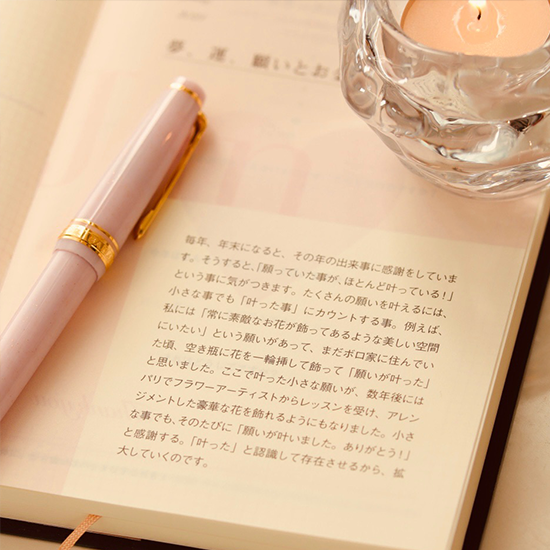 夢、運、願いとお
毎年、年末になると、その年の出来事に感謝をしていま
す。そうすると、「願っていた事が、ほとんど叶っている！」
という事に気がつきます。たくさんの願いを叶えるには、
小さな事でも「叶った事」にカウントする事。例えば、
私には「常に素敵なお花が飾ってあるような美しい空間
にいたい」という願いがあって、まだボロ家に住んでい
た頃、空き瓶に花を一輪挿して飾って「願いが叶った」
と思いました。ここで叶った小さな願いが、数年後には
パリでフラワーアーティストからレッスンを受け、アレン
ジメントした豪華な花を飾れるようにもなりました。小さ
な事でも、そのたびに「願いが叶いました。ありがとう！」
と感謝する。「叶った」と認識して存在させるから、拡
大していくのです。